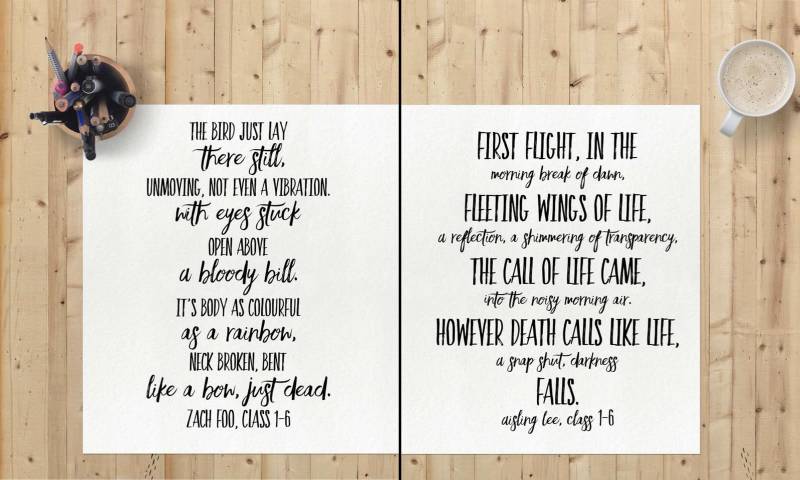 THE BIRD JUST LAY
there still,
UNMOVING, NOT EVEN A VIBRATION.
with eyes stuck
OPEN ABOVE
a bloody bill.
IT'S BODY AS COLOURFUL
as a rainbow,
NECK BROKEN, BENT
like a bow, just dead.
ZACH FOO, CLASS 1-6
FIRST FLIGHT, IN THE
morning break of dawn,
FLEETING WINGS OF LIFE,
a reflection, a shimmering of transparency,
THE CALL OF LIFE CAME,
into the noisy morning air.
HOWEVER DEATH CALLS LIKE LIFE,
a snap shut, darkness
FALLS.
aisling lee, class 1-6